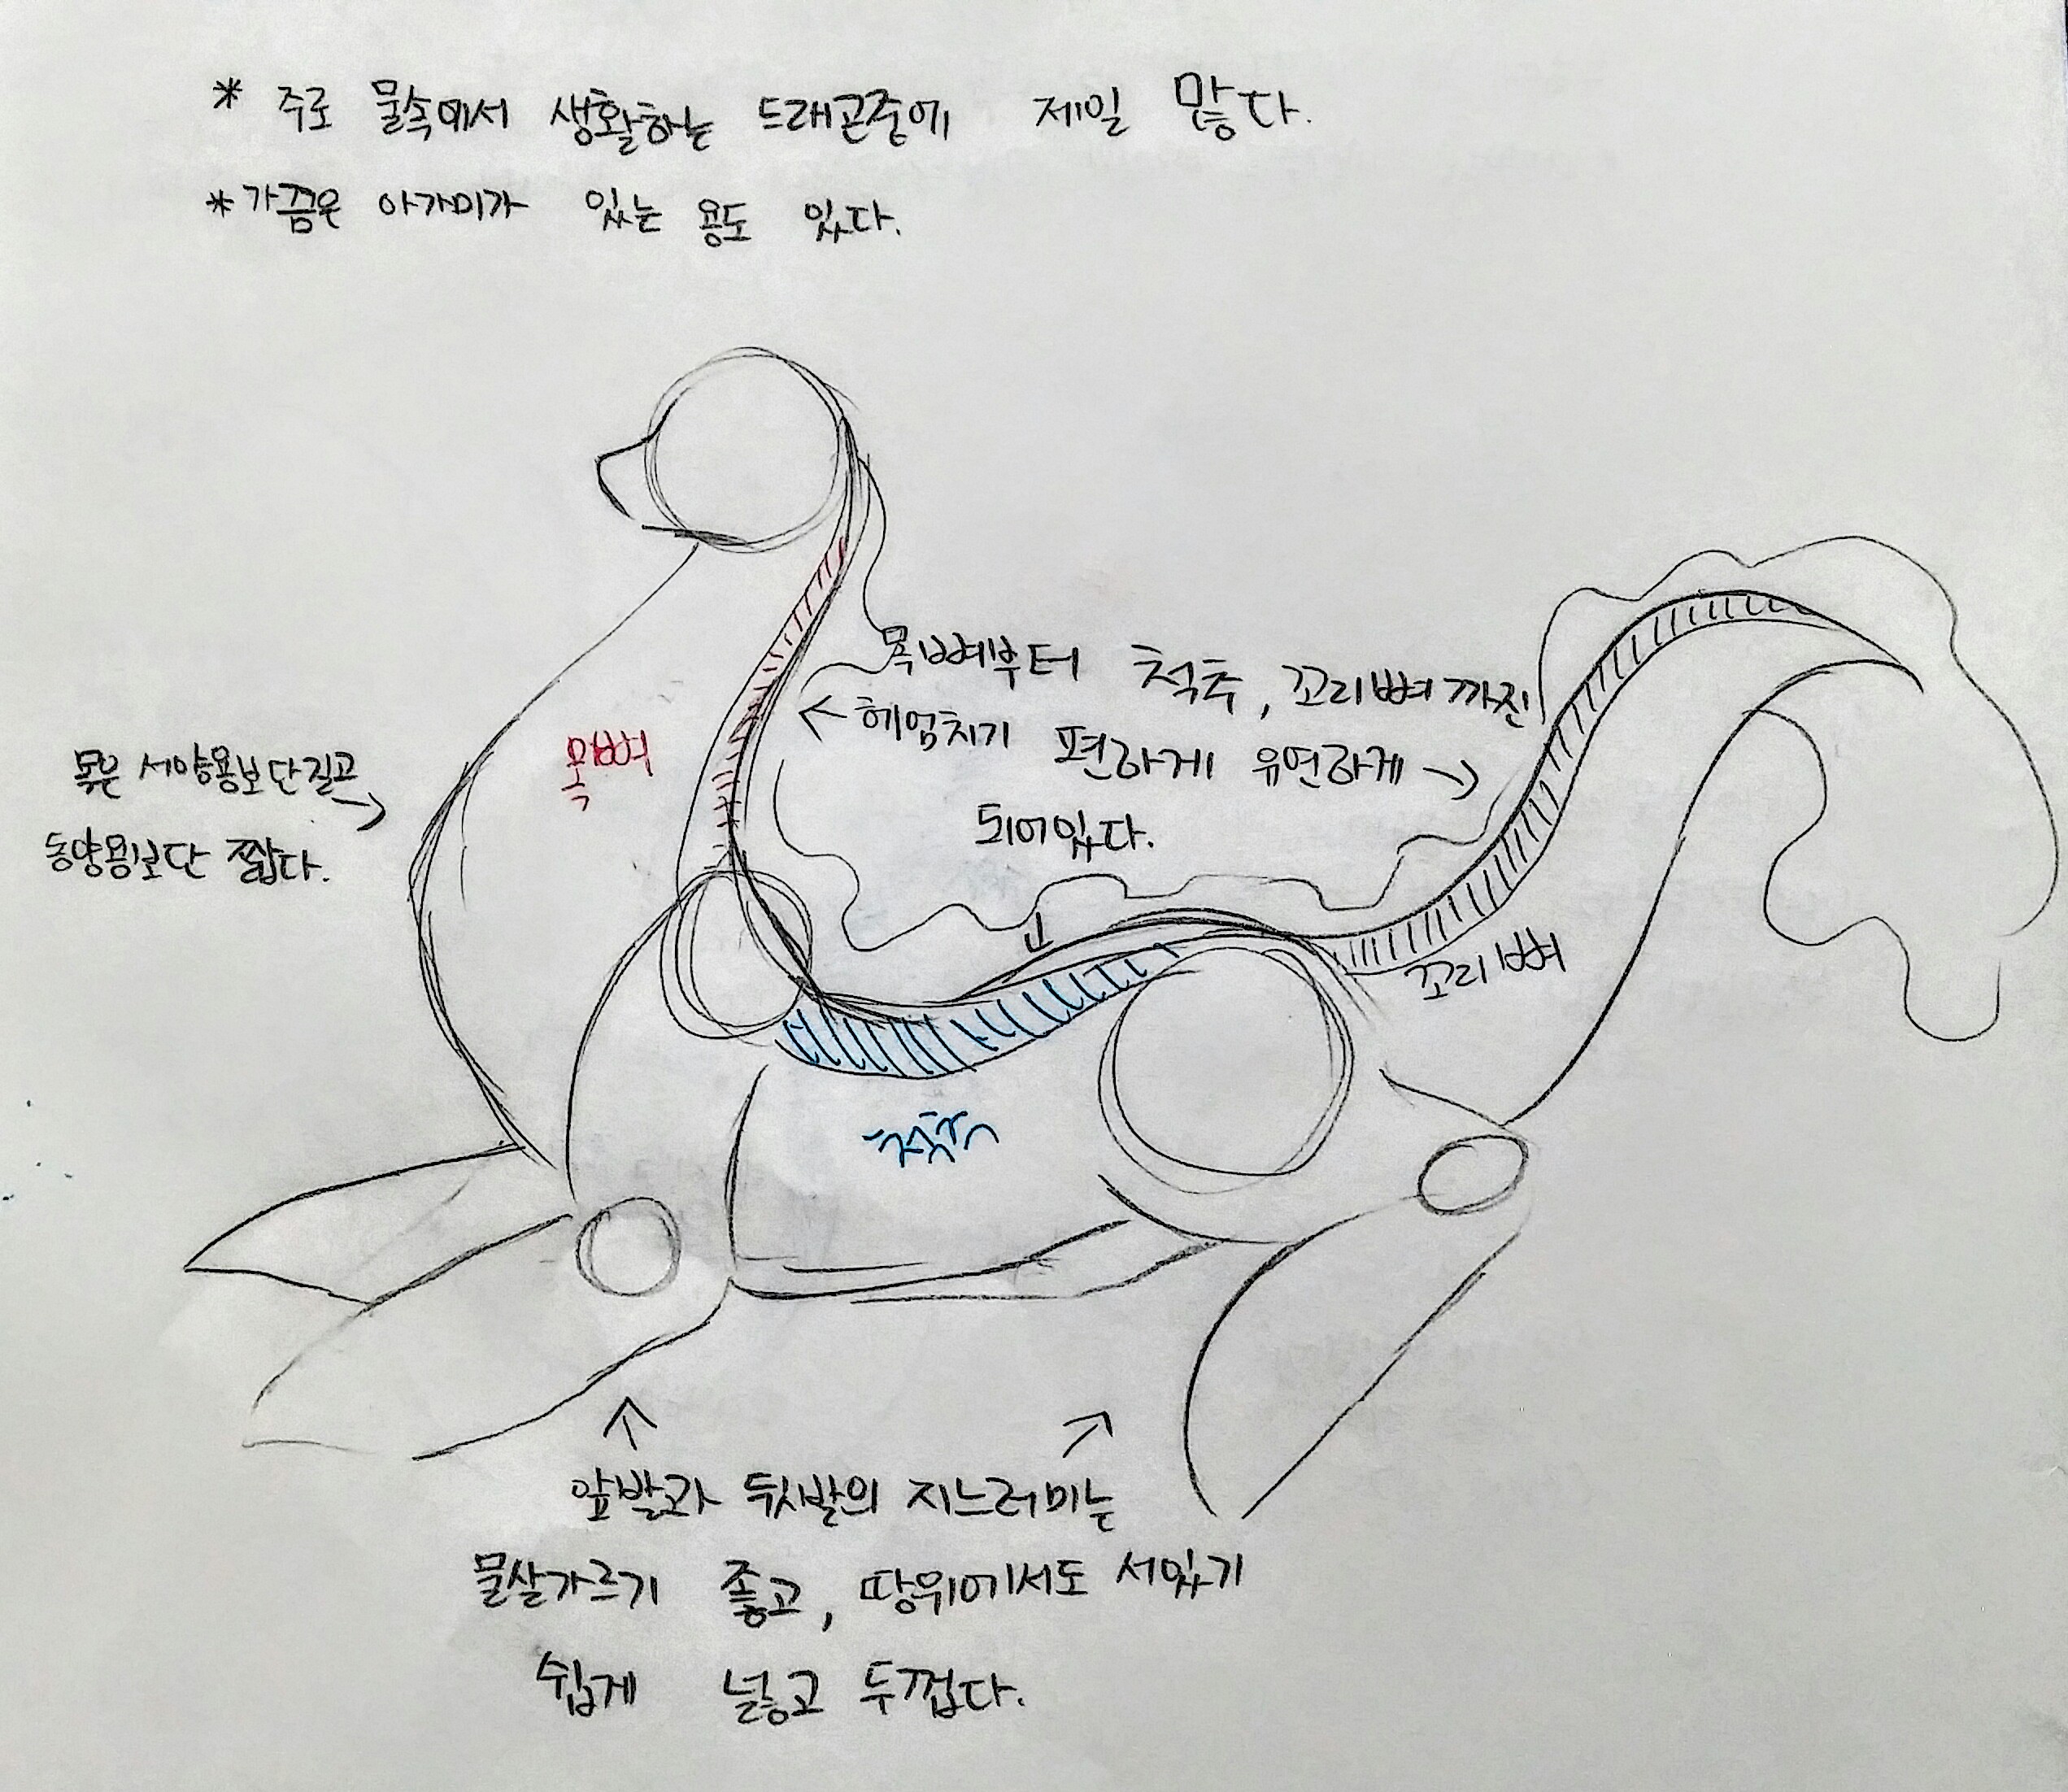 * 주로 물속에서 생활하는 드래곤중에 제일 많다.
* 가끔은 아가미가 있는 용도 있다.
목뼈부터 척추, 꼬리뼈까진
← 헤엄치기 편하게 유연하게 →
되어있다.
목뼈
목은 서양용보단 길고 →
동양용보단 짧다.
꼬리뼈
척추
앞발과 뒷발의 지느러미는
물살가르기 좋고, 땅위에서도 서있기
쉽게 넓고 두껍다.